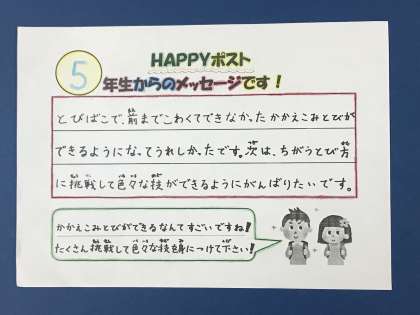 HAPPYポスト
5年生からのメッセージです！
とびばこで、前までこわくてできなかったかかえこみとびが
できるようになってうれしかったです。次は、ちがうとび方
に挑戦して色々な技ができるようにがんばりたいです。
かかえこみとびができるなんてすごいですね！
たくさん挑戦して色々な技を身につけて下さい！